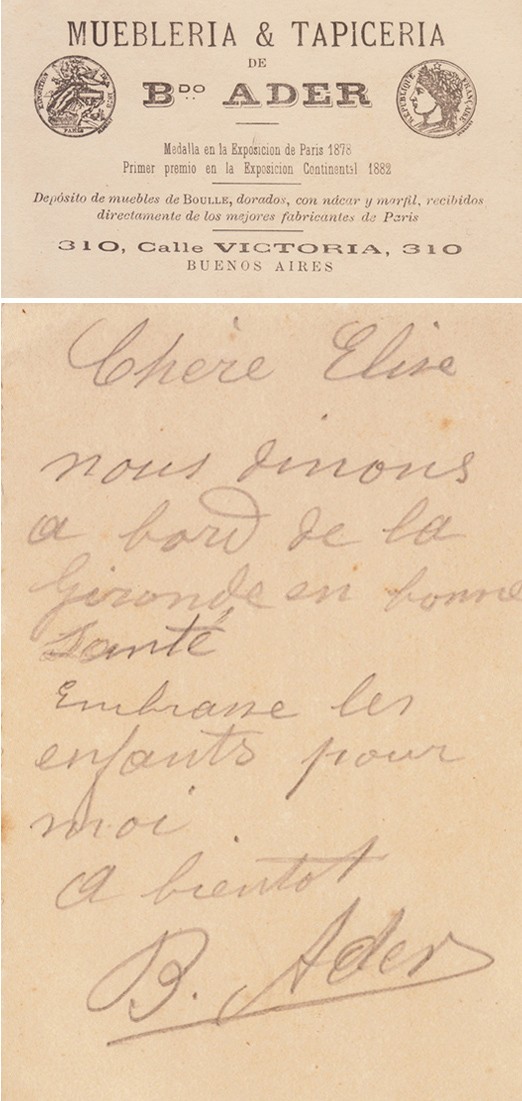 MUEBLERIA & TAPICERIA
DE
BDO ADER
PARIS
REPUBLIQUE FRANÇAISE
Medalla en la Exposicion de Paris 1878
Primer premio en la Exposicion Continental 1882
Depósito de muebles de BOULLE, dorados, con nácar y marfil, recibidos
directamente de los mejores fabricantes de Paris
310, Calle VICTORIA, 310
BUENOS AIRES
Chère Elise
nous dinons
a bord de la
Gironde en bonne
Santé
Embrasse les
enfants pour
moi
a bientot
B. Ader